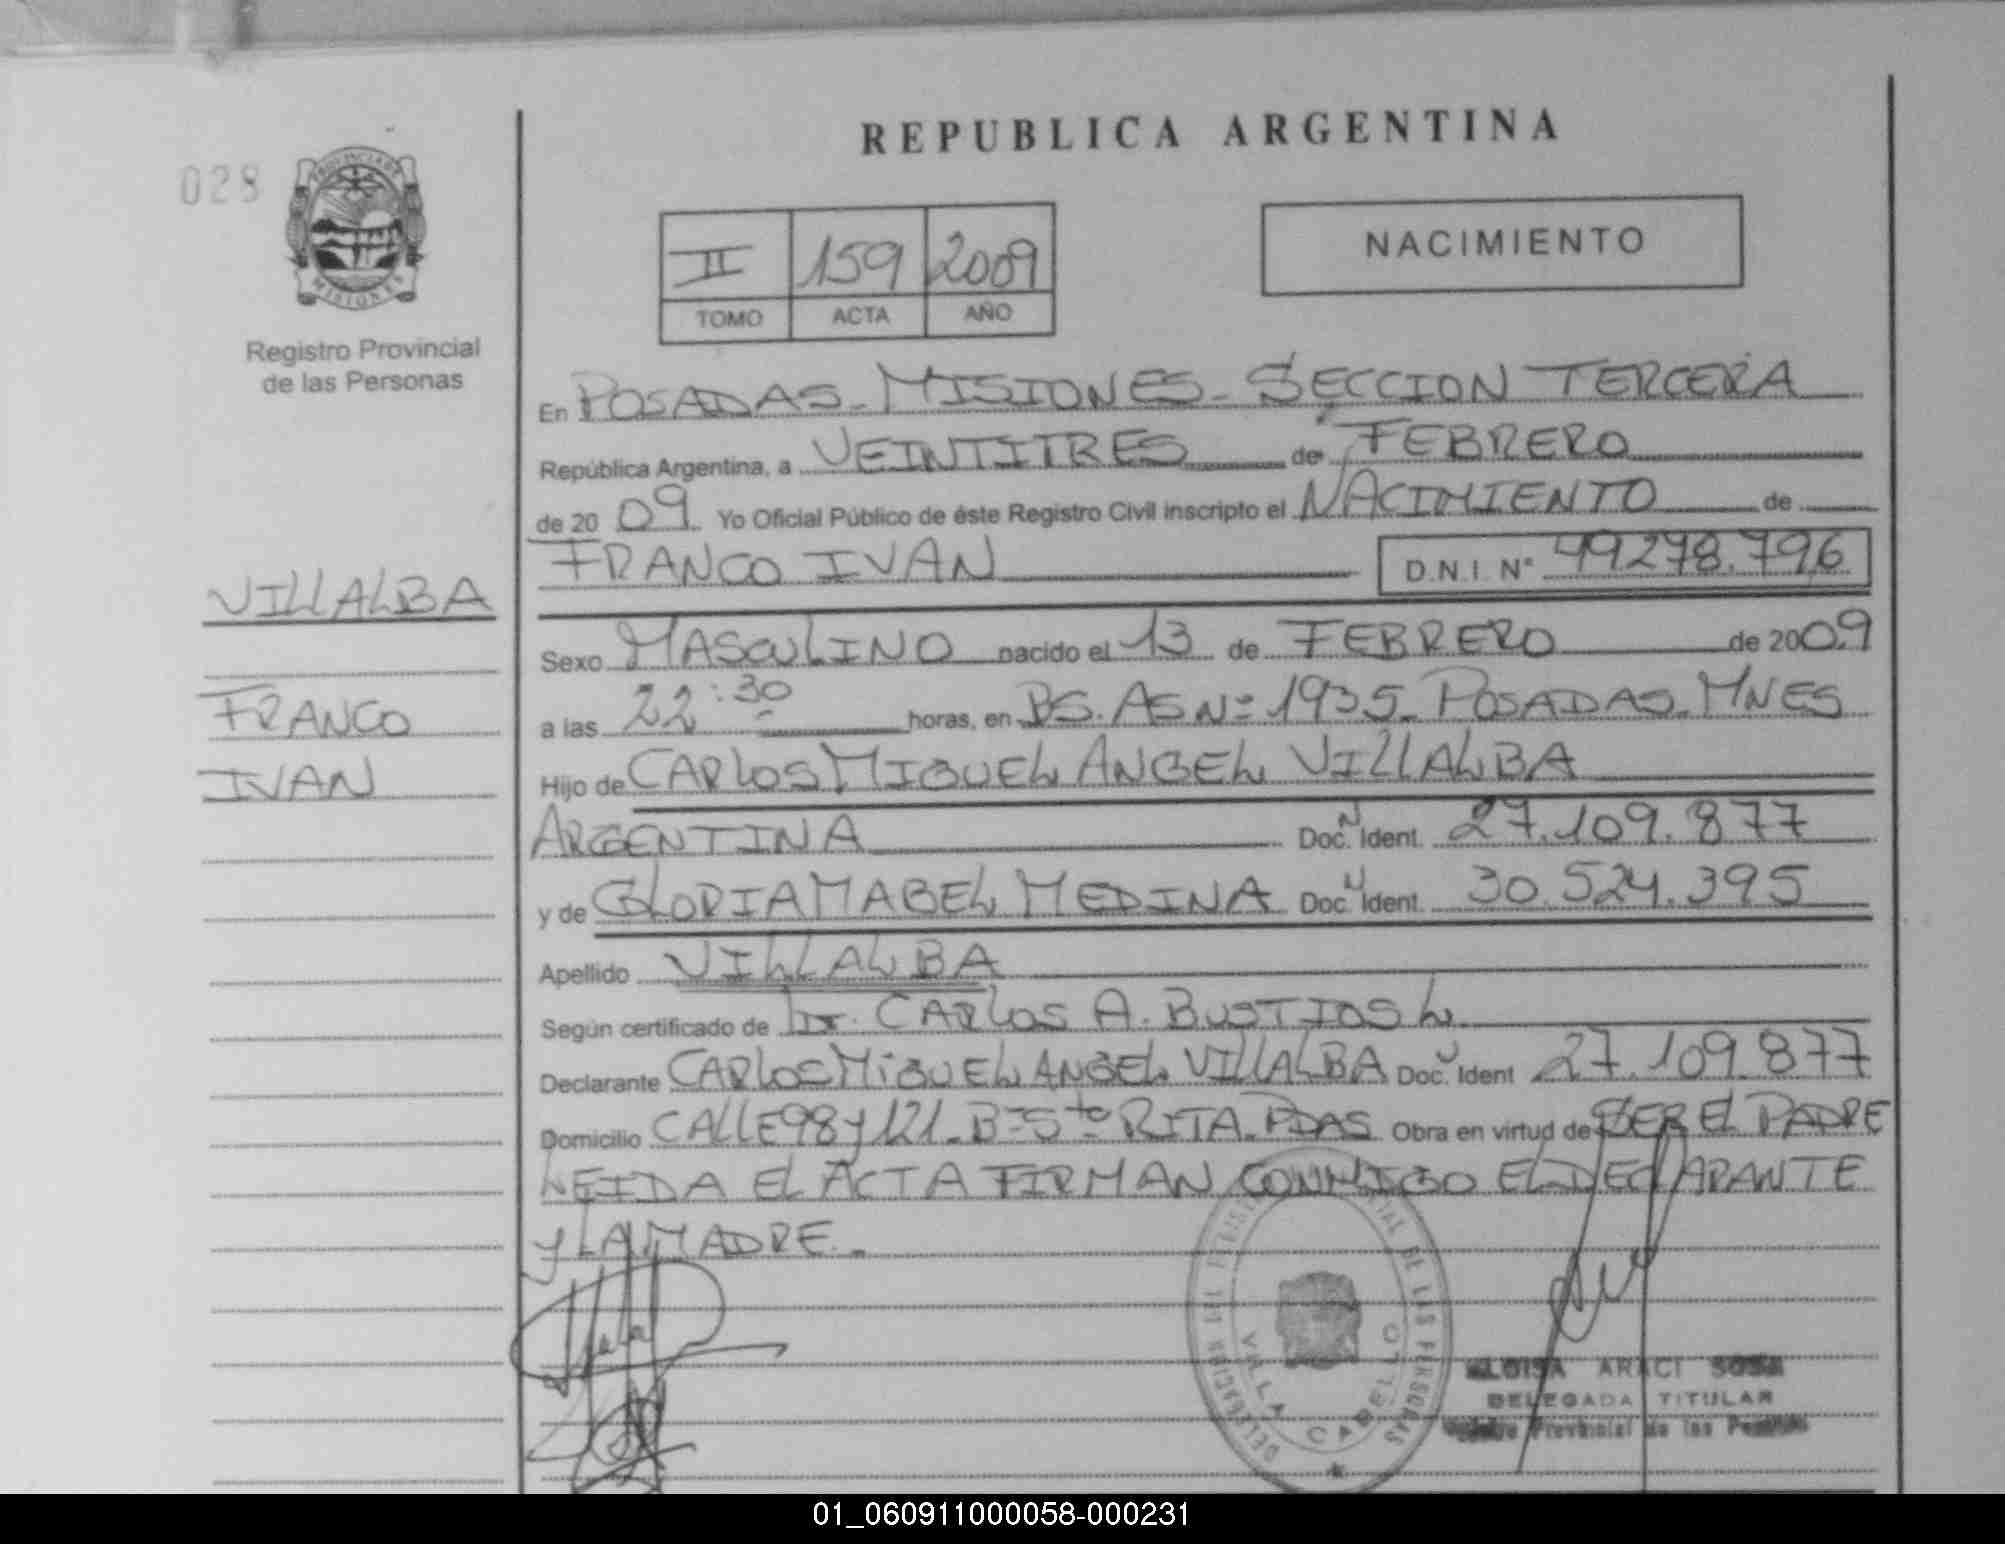 REPUBLICA ARGENTINA
028
PROVINCIA DE
MISIONES
Registro Provincial
de las Personas
II 159 2009
TOMO ACTA AÑO
NACIMIENTO
En POSADAS - MISIONES - SECCION TERCERA
República Argentina, a VEINTITRES de FEBRERO
de 2009 Yo Oficial Público de éste Registro Civil inscripto el NACIMIENTO de
FRANCO IVAN D.N.I. Nº 49278.796
VILLALBA
Sexo MASCULINO nacido el 13 de FEBRERO de 2009
FRANCO
a las 22:30 horas, en BS. AS Nº 1935 - POSADAS - MNES
IVAN
Hijo de CARLOS MIGUEL ANGEL VILLALBA
ARGENTINA Doc. N Ident. 27.109.877
y de GLORIA MABEL MEDINA Doc. N Ident. 30.524.395
Apellido VILLALBA
Según certificado de Dr. CARLOS A. BUSTIOS L.
Declarante CARLOS MIGUEL ANGEL VILLALBA Doc. N Ident 27.109.877
Domicilio CALLE 98 y 121 - Bº Sta RITA - PDAS Obra en virtud de SER EL PADRE
LEIDA EL ACTA FIRMAN CONMIGO EL DECLARANTE
y LA MADRE.-
DELEGACION DE LAS PERSONAS
VILLA CABELLO
ARACI SOSA
DELEGADA TITULAR
Provincial de las
01_060911000058-000231